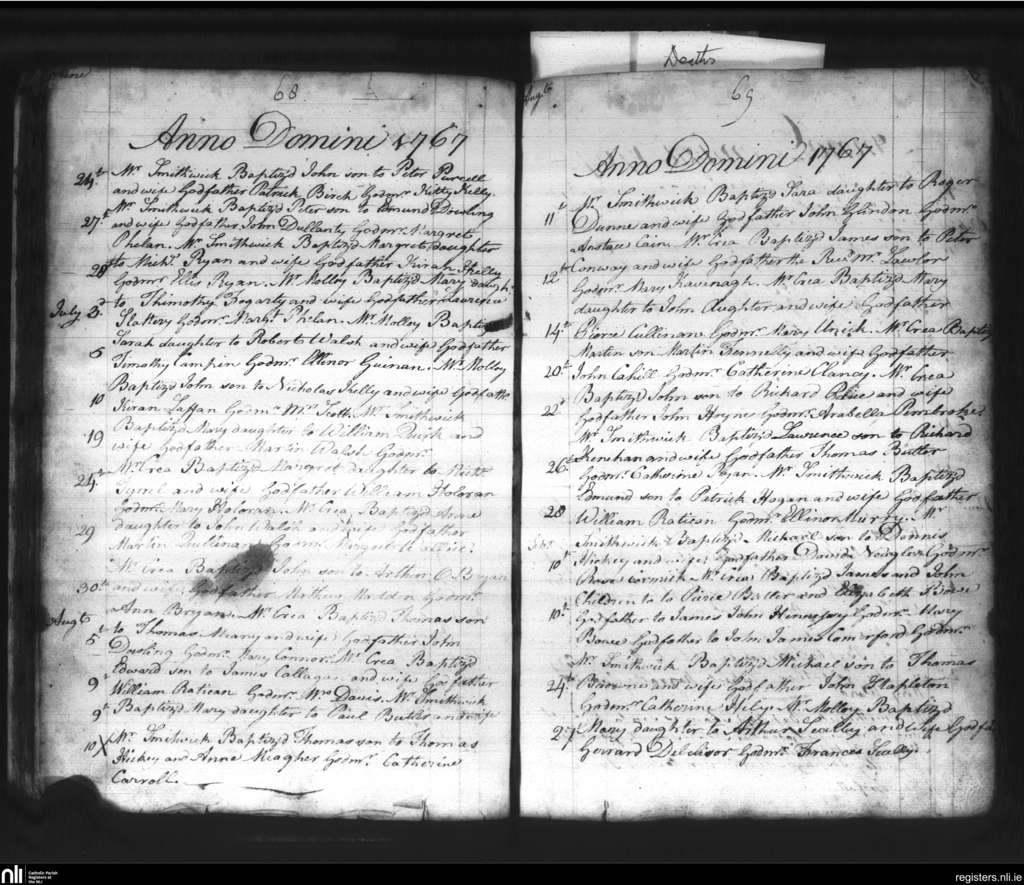 Deaths
68
Anno Domini 1767
24th Mr Smithwick Baptizd John son to Peter Purcell
and wife Godfather Patrick Birch Godmr Kitty Kelly.
27th Mr Smithwick Baptizd Peter son to Edmund Dowling
and wife Godfather John Dullanty Godmr Margret
Phelan. Mr Smithwick Baptizd Margret daughter
28th to Michl Ryan and wife Godfather Kiran Kelly
Godmr Ellis Ryan. Mr Molloy Baptizd Mary daugh
July 3d to Thimothy Fogarty and wife Godfather Laurence
Slattery Godmr Margt Phelan. Mr Molloy Baptizd
Sarah daughter to Robert Walsh and wife Godfather
5 Timothy Campin Godmr Ellinor Guinan. Mr Molloy
Baptizd John son to Nicholas Kelly and wife Godfathr
10 Kiran Laffan Godmr Mrs Mr Smithwick
19 Baptizd Mary daughter to William Quirk and
wife Godfather Martin Walsh Godmr
24th Mr Crea Baptizd Margret daughter to
and wife Godfather William Holoran
Godmr Mary Holoran. Mr Crea Baptizd Anne
29 daughter to John Walsh and wife Godfather
Martin Godmr Margret
Mr Crea Baptizd John son to Arthur O Bryan
30th and wife Godfather Godmr
Ann Bryan. Mr Crea Baptizd Thomas son
Augt 5t to Thomas Meany and wife Godfather John
Dowling Godmr Mary Connor. Mr Crea Baptizd
Edward son to James Callagan and wife Godfather
9t William Ratican Godmr Mrs Davis. Mr Smithwick
9th Baptizd Mary daughter to Paul Butler and wife
10 X Mr Smithwick Baptizd Thomas son to Thomas
Hickey and Anne Meagher Godmr Catherine
Carroll.
Augt
69
Anno Domini 1767
11t Mr Smithwick Baptizd Sara daughter to Roger
Dunne and wife Godfather John Glindon Godmr
Anstace Cain. Mr Crea Baptizd James son to Peter
12t Conway and wife Godfather the Revd Mr Lawlor
Godmr Mary Kavenagh. Mr Crea Baptizd Mary
daughter to John Aughter and wife Godfather
14th Pierce Cullinan Godmr Mary. Mr Crea Baptizd
Martin son Martin Fennelly and wife Godfather
20th John Cahill Godmr Catherine Clancy. Mr Crea
Baptizd John son to Richard and wife
22t Godfather John Hoyne Godmr Arabella Pembroke.
Mr Smithwick Baptizd Lawrence son to Richard
26th Kenehan and wife Godfather Thomas Butler
Godmr Catherine Ryan. Mr Smithwick Baptizd
Edmund son to Patrick Hogan and wife Godfather
28 William Ratican Godmr Ellinor Murry. Mr
Sept Smithwick Baptizd Michael son to Dennis
10t Hickey and wife Godfather David Godmr
Cormick Mr Crea Baptizd James and John
Children to to Pierce Butler and Elizabeth Bowe
10t Godfather to James John Hennessy Godmr Mary
Bowe Godfather to John James Comerford Godmr
Mr Smithwick Baptizd Michael son to Thomas
24th Browne and wife Godfather John Stapleton
Godmr Catherine Hily. Mr Molloy Baptizd
27 Mary daughter to Arthur Scully and wife Godfa
Gerrard Godmr Frances Scully
nli
Catholic Parish
Registers at
the NLI
registers.nli.ie